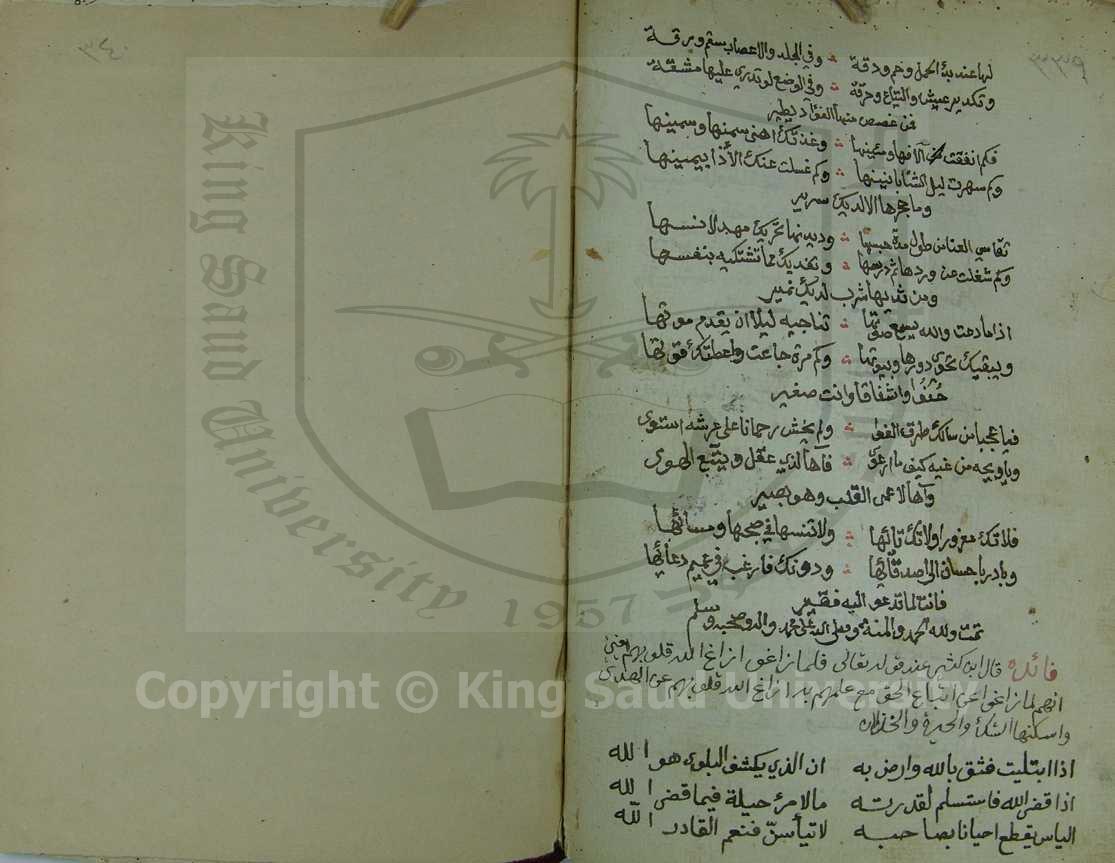 لها عند بدء الحمل وخم ودقة ∴ وفي الجلد والاعصاب سقم ورقة
وتكدير عيش والتياع وحرقة ∴ وفي الوضع لو تدري عليها مشقة
فمن غصص منها الفؤاد يطير
فكم انفقت آلافها ومئينها ∴ وغذتك اهنى سمنها وسمينها
وكم سهرت ليل الشتا بانينها ∴ وكم غسلت عنك الأذا بيمينها
وما حجرها الا لديك سرير
تقاسي العنا من طول مدة حبسها ∴ وديدنها تحريك مهد لانسها
وكم شغلت عن وردها ثم درسها ∴ وتفديك مما تشتكيه بنفسها
ومن ثديها شرب لديك نمير
اذا ما دعت والله يسمع صوتها ∴ تناجيه ليلا ان يقدم موتها
ويبقيك تحوي دورها وبيوتها ∴ وكم مرة جاعت واعطتك قوتها
حنوا واشفاقا وانت صغير
فيا عجبا من سالك طرق الغوا ∴ ولم يخش رحمانا على عرشه استوى
ويا ويحه من غيه كيف ما ارعوى ∴ فآها لذي عقل ويتبع الهوى
وآها لاعمى القلب وهو بصير
فلا تك مغرورا ولا تك تائها ∴ ولا تنسها في صبحها ومسائها
وبادر باحسان الى اصدقائها ∴ ودونك فارغب في عميم دعائها
فانت لما تدعو اليه فقير
تمت ولله الحمد والمنة وصلى الله على محمد واله وصحبه وسلم
فائدة قال ابن كثير عند قوله تعالى فلما زاغوا ازاغ الله قلوبهم يعني
انهم لما زاغوا عن اتباع الحق مع علمهم به ازاغ الله قلوبهم عن الهدى
واسكنها الشك والحيرة والخذلان
اذا ابتليت فثق بالله وارض به ان الذي يكشف البلوى هو الله
اذا قضى الله فاستسلم لقدرته ما لامرئ حيلة فيما قضى الله
الياس يقطع احيانا بصاحبه لا تيأسن فنعم القادر الله
King Saud University
1957
Copyright © King Saud University